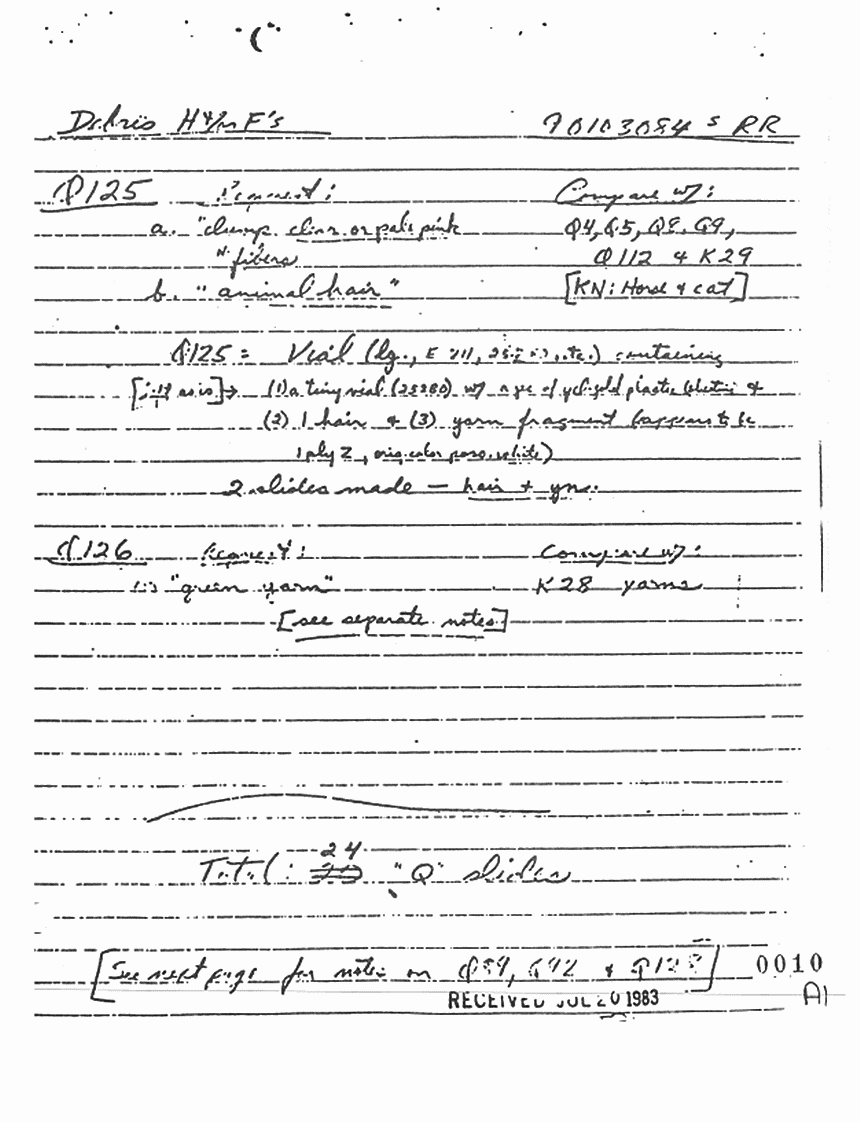 Debris H+/or F's 90103084 S RR
Q125 Request: Compare w/:
a. "clump clear or pale pink Q4, Q5, Q8, Q9,
fibers Q112 + K29
b. "animal hair" [KN: Horse + cat]
Q125 = Vial (lg., containing
as is] → (1) a tiny vial (25380) w/ a pc of yel-gold plastic &
(2) 1 hair & (3) yarn fragment (appears to be
1 ply Z, orig. color poss. white)
2 slides made — hair + yn.
Q126 Request: Compare w/:
"green yarn" K28 yarns
[see separate notes]
24
Total: "Q" slides
[See next page for notes on Q89, Q92 & 0010
RECEIVED JUL 20 1983 A1